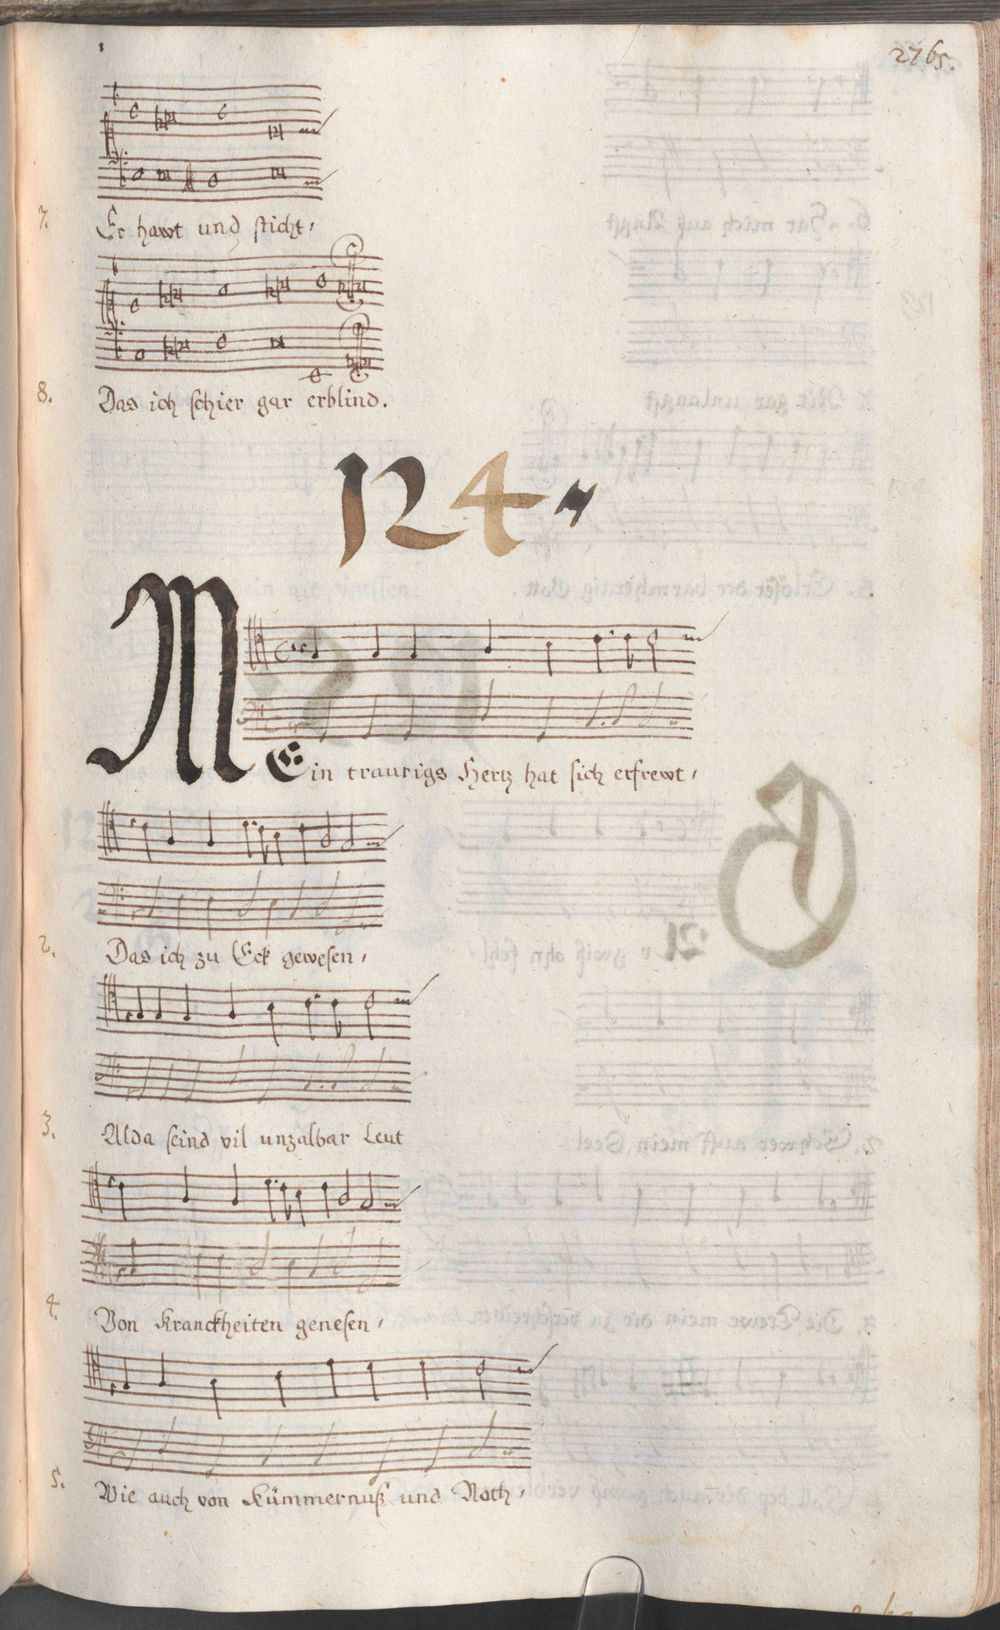 2765.
7. Er hawt und sticht,
8. Das ich schier gar erblind.
124
MEin traurigs Hertz hat sich erfrewt,
2. Das ich zu Eck gewesen,
3. Alda seind vil unzalbar Leut
4. Von Kranckheiten genesen,
5. Wie auch von Kümmernuß und Noth,